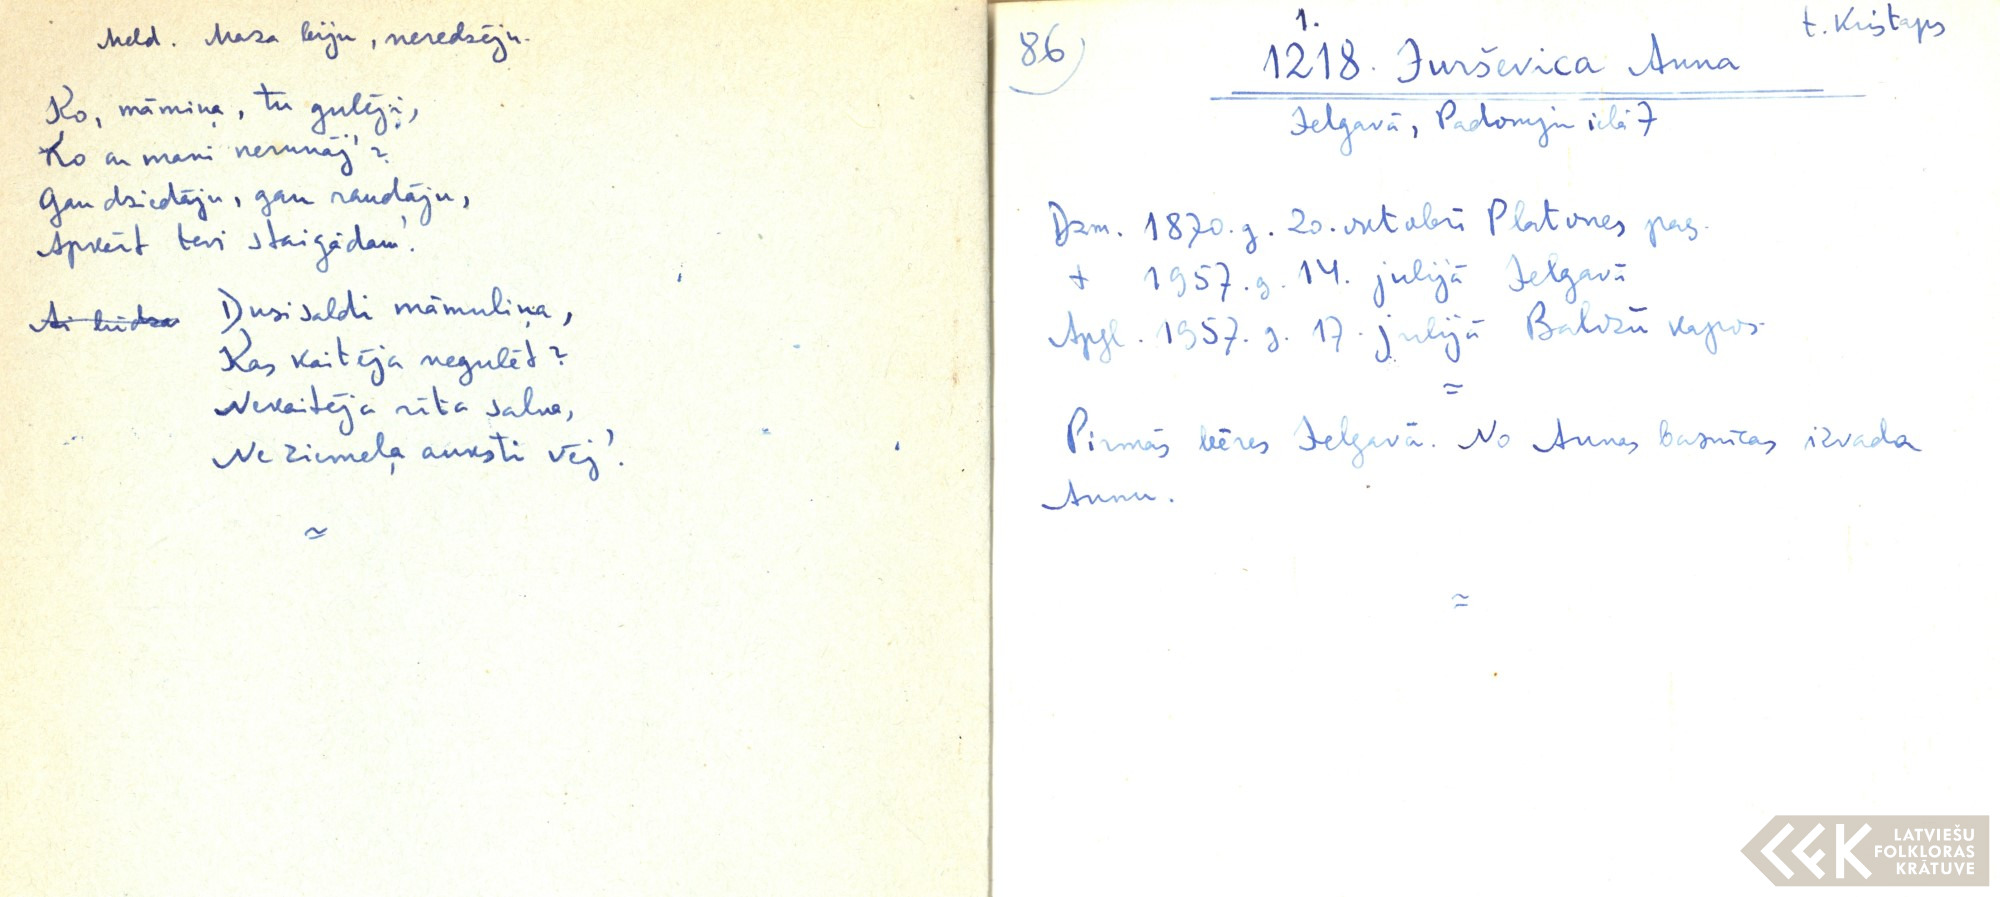 Meld. Maza biju, neredzēju.
Ko, māmiņa, tu gulēji,
Ko ar mani nerunāj'?
Gan dziedāju, gan raudāju,
Apkārt tevi staigādam'.
Ai lūdza Dusi saldi māmuliņa,
Kas kaitēja negulēt?
Nekaitēja rīta salna,
Ne ziemeļa auksti vēj'.
≈
86)
1.
t. Kristaps
1218. Jurševica Anna
Jelgavā, Padomju ielā 7
Dzm. 1870. g. 20. oktobrī Platones pag.
+ 1957. g. 14. julijā Jelgavā
Apgl. 1957. g. 17. julijā Baložu kapos
≈
Pirmās bēres Jelgavā. No Annas baznīcas izvada
Annu.
≈
LATVIEŠU
FOLKLORAS
KRĀTUVE